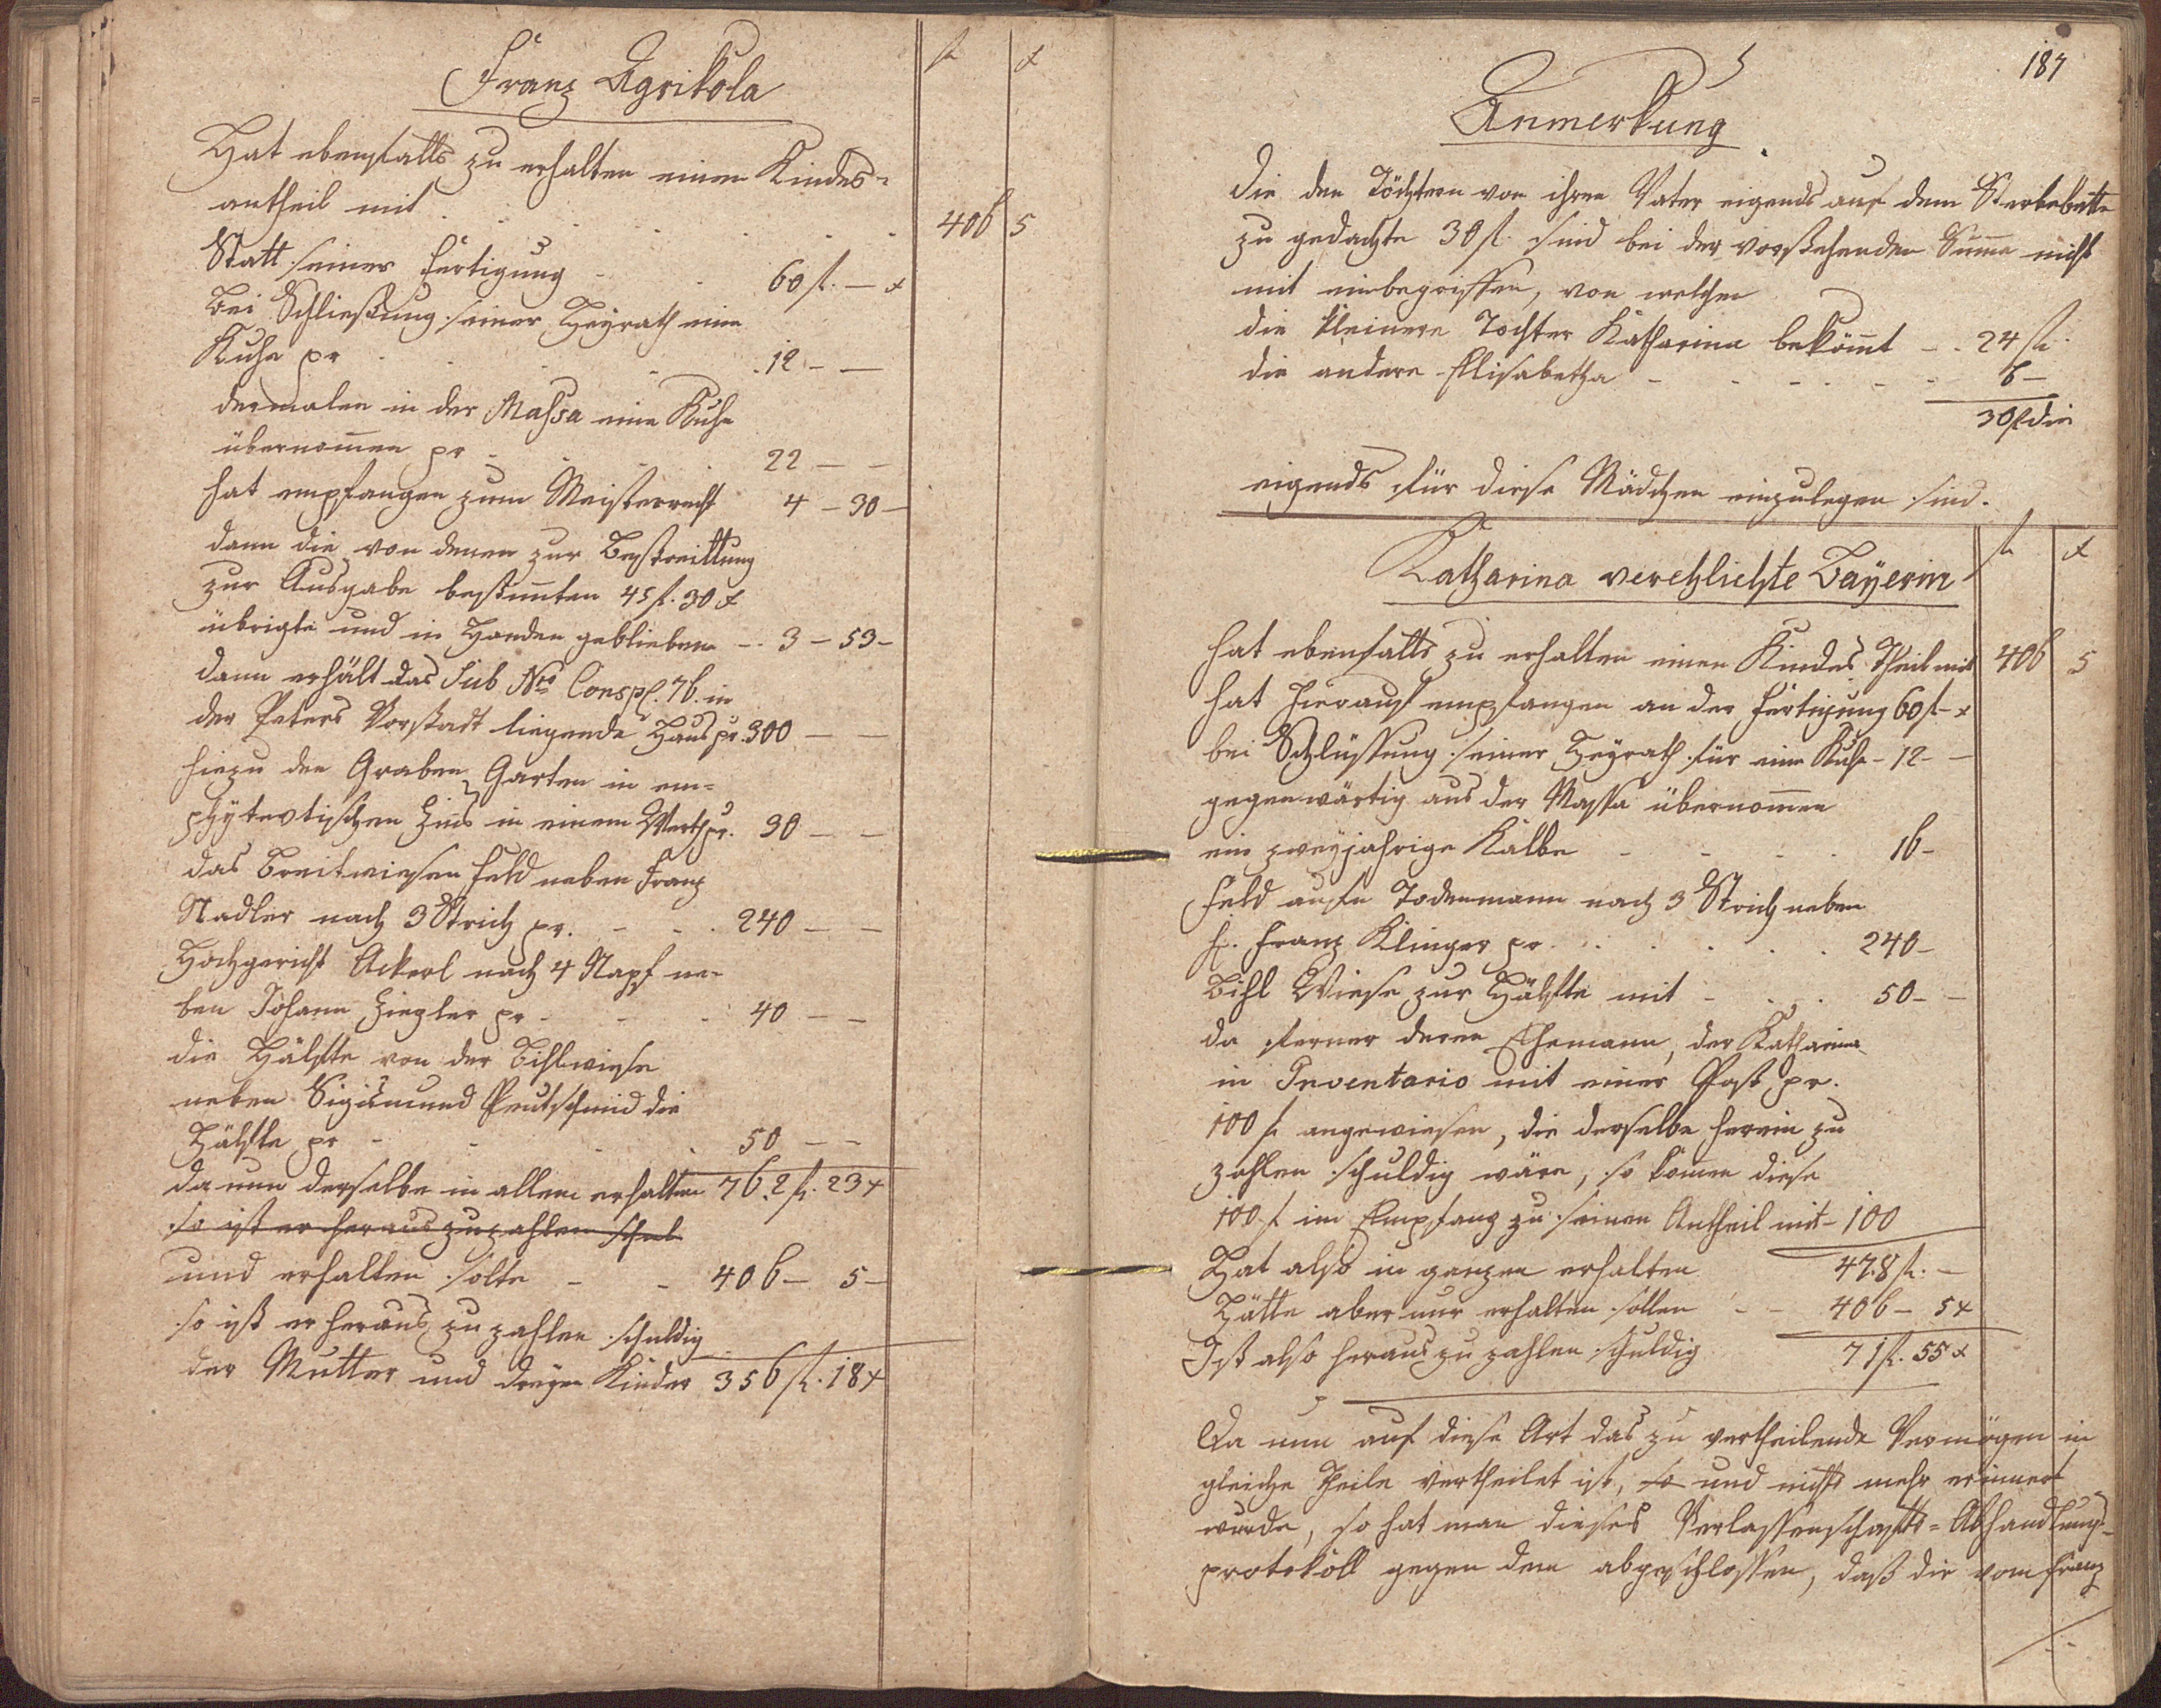 Franz Agrikola
fl x
Hat ebenfalls zu erhalten einen Kindes=
antheil mit . . . . . 406 5
Statt seiner Fertigung - . 60 fl. — x
bei Schließung seiner Heyrath eine
Kuhe pr . . . . 12 — —
dermalen in der Massa eine Kuhe
übernom̄en pr - . . . 22 — —
hat empfangen zum Meisterrecht 4 — 30 —
dann die von denen zur Bestreittung
zur Ausgabe bestim̄ten 45 fl. 30 x
übrigte und in Handen geblieben - . 3 — 53 —
dann erhält das Sub Nro Consp. 76. in
der Peters Vorstadt liegende Haus pr. 300 — —
hiezu den Graben Garten in em=
phytevtischen Zins in einem Werth pr. 30 — —
das Breitwiesen Feld neben Franz
Stadler nach 3 Strich pr. - - . 240 — —
Hochgericht Ackerl nach 4 Napf ne=
ben Johann Ziegler pr - - . 40 — —
die Hälfte von der Bihlwiese
neben Sigismund Peutschmid die
Hälfte pr - - . . 50 — —
da nun derselbe in allem erhalten 762 fl. 23 x
so ist er heraus zuzahlen schul
und erhalten solte - - 406 — 5 —
so ist er heraus zu zahlen schuldig
der Mutter und dreyen Kinder 356 fl. 18 x
187
Anmerkung
die den Töchtern von ihren Vater eigends auf dem Sterbebette
zu gedachte 30 fl. sind bei der vorstehenden Sum̄e nicht
mit einbegriffen, von welchen
die kleinere Tochter Katharina beköm̄t - . 24 fl.
die andere Elisabetha - - - - - 6 —
30 fl die
eigends für diese Mädchen einzulegen sind.
fl x
Katharina verehlichte Bayerin
hat ebenfalls zu erhalten einen Kindes Theil mit 406 5
hat hierauf empfangen an der Fertigung 60 fl - x
bei Schlüssung seiner Heyrath für eine Kuhe - 12 - —
gegenwärtig aus der Massa übernom̄en
ein zweyjahrige Kalbe - - - . 16 -
Feld aufn Todenmann nach 3 Strich neben
H. Franz Klinger pr . . . . . 240 -
Bihl Wiese zur Hälfte mit - . . 50 - —
da ferner deren Ehemann, der Katharina
in Inventario mit einer Post pr.
100 fl angewiesen, die derselbe herein zu
zahlen schuldig wäre, so kom̄en diese
100 fl im Empfang zu seinen Antheil mit - 100
Hat also in ganzen erhalten 478 fl. —
Hätte aber nur erhalten sollen - - 406 — 5 x
Ist also heraus zu zahlen schuldig 71 fl. 55 x
Da nun auf diese Art das zu vertheilende Vermögen in
gleiche Theile vertheilet ist, so und nichts mehr erinnert
wurde, so hat man dieses Verlassenschafts = Abhandlungs=
protokoll gegen dem abgeschlossen, daß die vom Franz